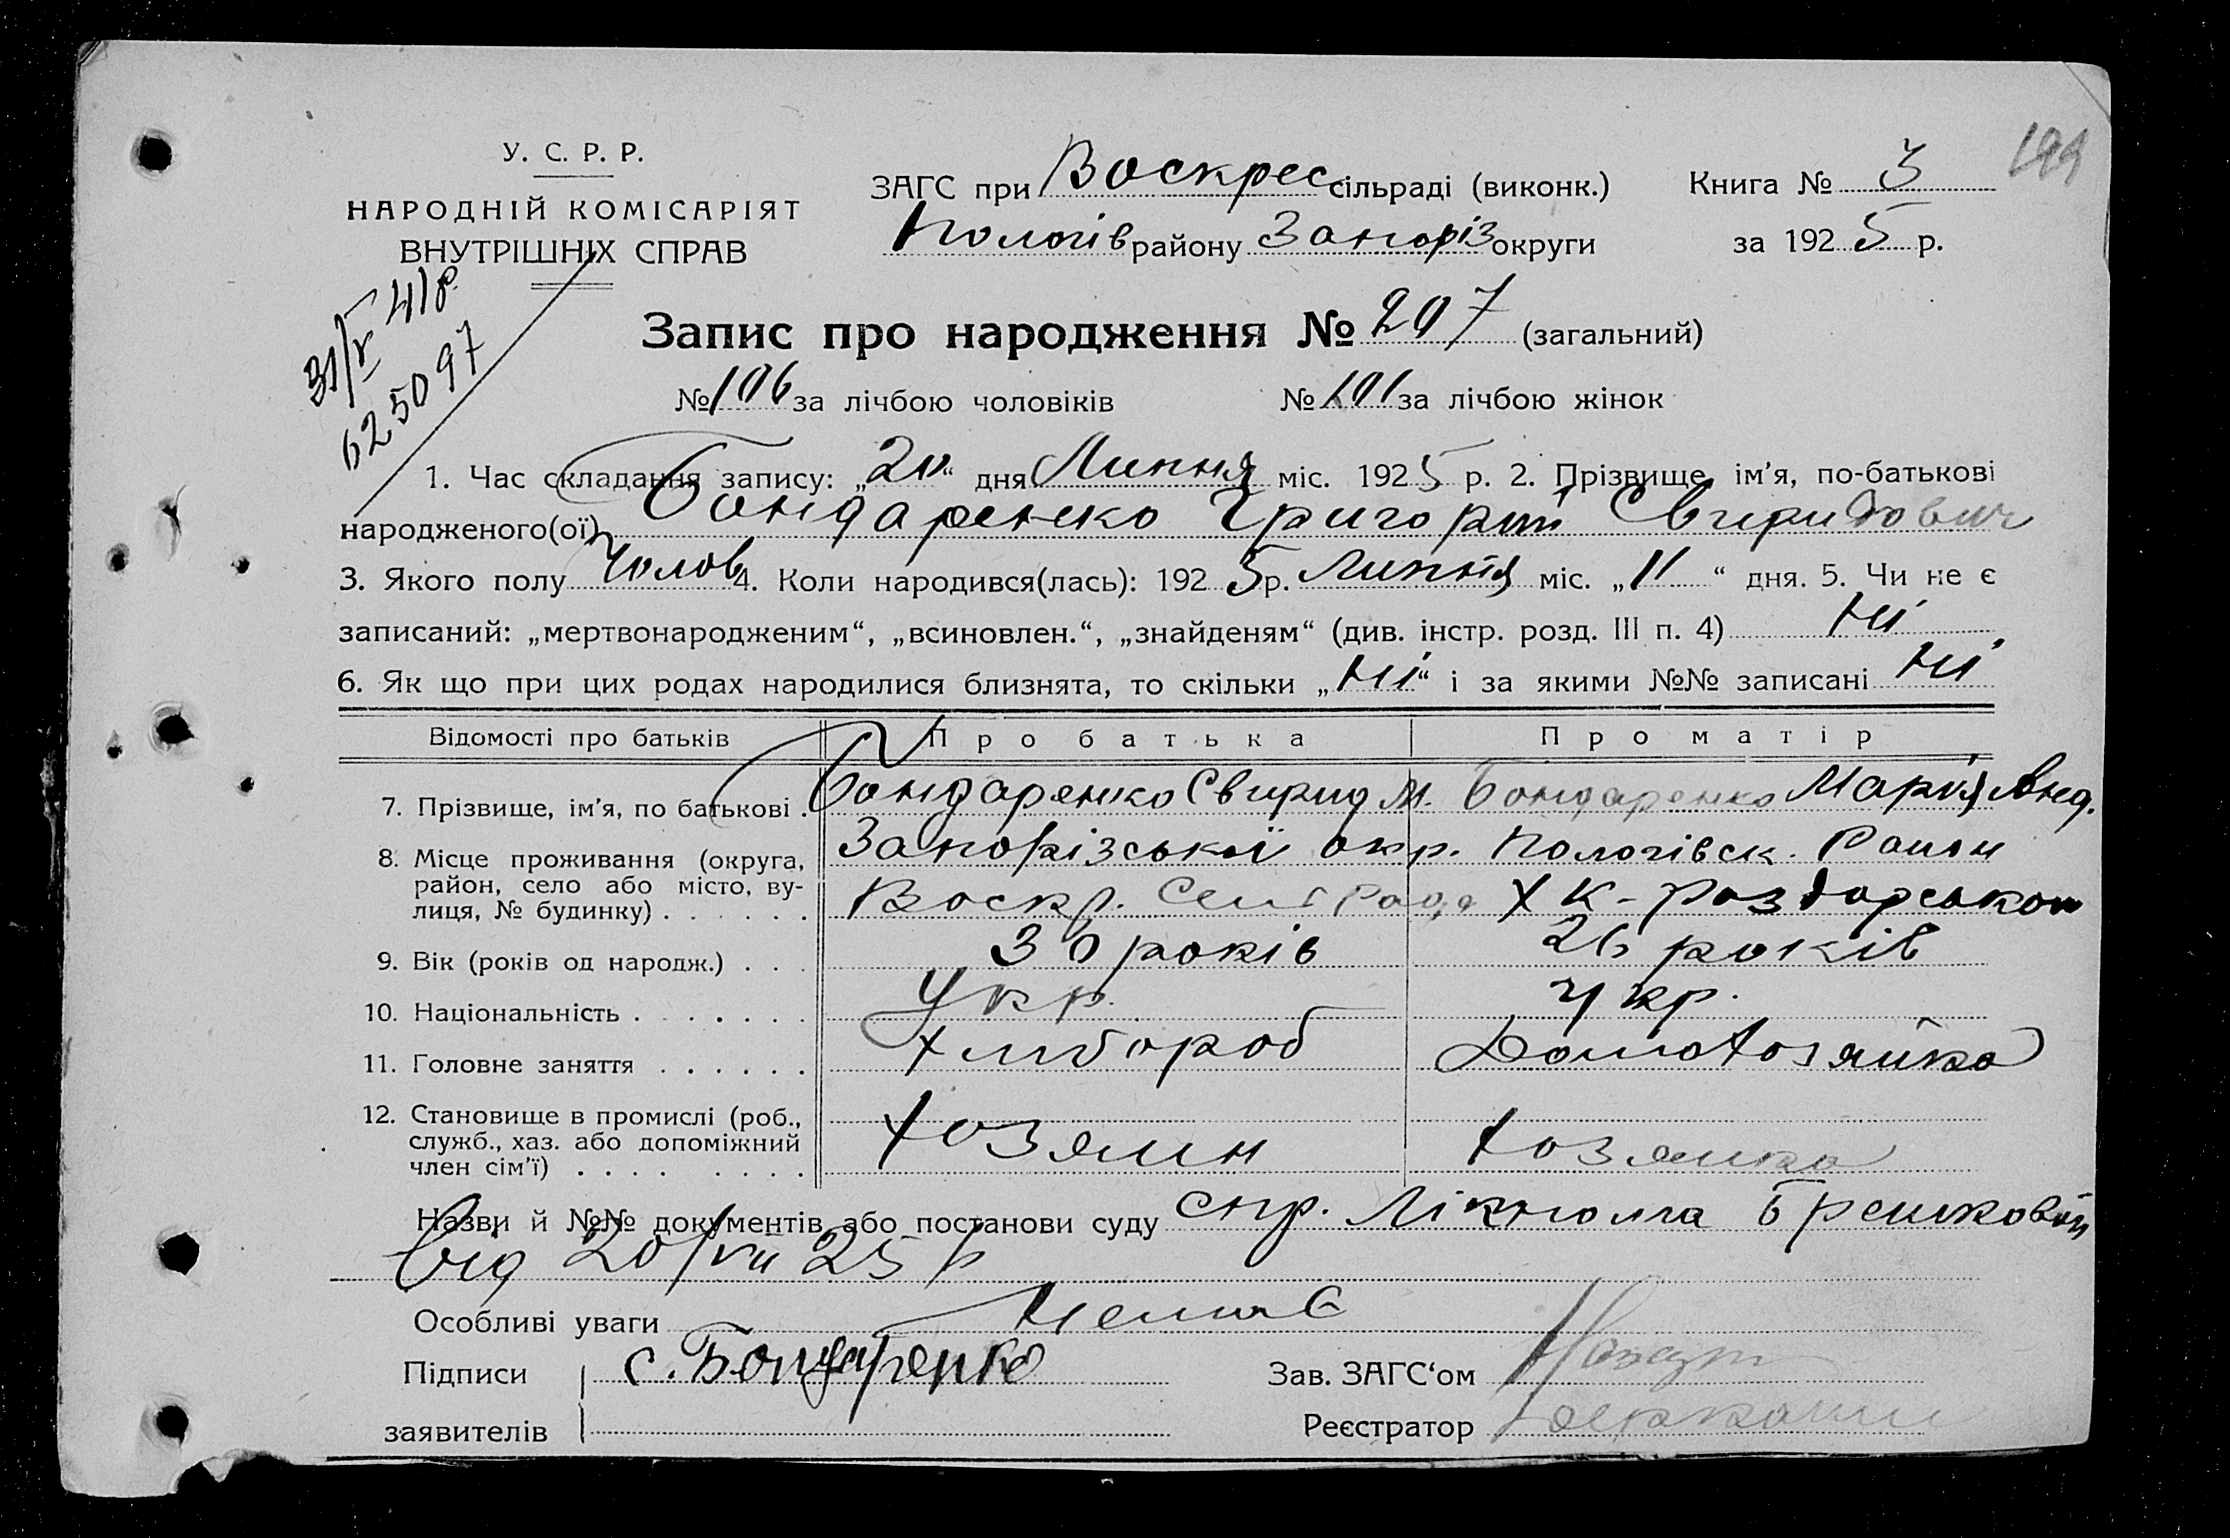 У. С. Р. Р.
НАРОДНІЙ КОМІСАРІЯТ
ВНУТРІШНІХ СПРАВ
ЗАГС при Воскрес. сільраді (виконк.)
Пологів району Запоріз округи
Книга № 3
за 1925 р.
199
31/V 418
625097
Запис про народження № 207 (загальний)
№ 106 за лічбою чоловіків № 101 за лічбою жінок
1. Час складання запису: „20“ дня Липня міс. 1925 р. 2. Прізвище, ім’я, по-батькові
народженого(ої) Бондаренко Григорій Свиридович
3. Якого полу Чолов 4. Коли народився(лась): 1925 р. Липня міс. „11“ дня. 5. Чи не є
записаний: „мертвонародженим“, „всиновлен.“, „знайденям“ (див. інстр. розд. III п. 4) Ні
6. Як що при цих родах народилися близнята, то скільки „Ні“ і за якими №№ записані Ні
Відомості про батьків Про батька Про матір
7. Прізвище, ім’я, по батькові . Бондаренко Свирид М. Бондаренко Марія Анд.
8. Місце проживання (округа, Запорізської окр. Пологівск. Район
район, село або місто, ву-
лиця, № будинку) . . . . . . Воскр. Сельрада Х К-Роздорськом
9. Вік (років од народж.) . . . 30 років 26 років
10. Національність . . . . . . . Укр. Укр.
11. Головне заняття . . . . . . Хлібороб Домохозяйка
12. Становище в промислі (роб.,
служб., хаз. або допоміжний Хозяин Хозяйка
член сім’ї) . . . . . . . .
Назви й №№ документів або постанови суду спр. Лікпома Брешковой
від 20/VII 25 р
Особливі уваги Немає
Підписи С. Бондаренко Зав. ЗАГС‘ом
заявителів Реєстратор